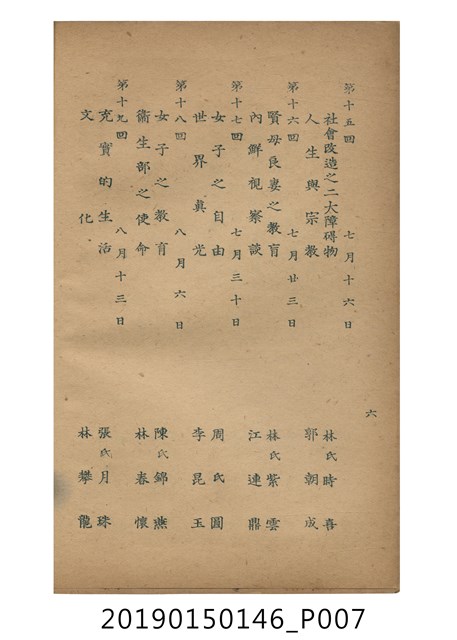 第十五回 七月十六日
社會改造之二大障碍物 林氏時喜
人生與宗教 郭朝成
第十六回 七月廿三日
賢母良妻之教育 林氏紫雲
內鮮視察談 江連鼎
第十七回 七月三十日
女子之自由 周氏圓
世界眞光 李昆玉
第十八回 八月六日
女子之教育 陳氏錦燕
衞生部之使命 林春懷
第十九回 八月十三日
充實的生活 張氏月珠
文化 林攀龍
六
20190150146_P007